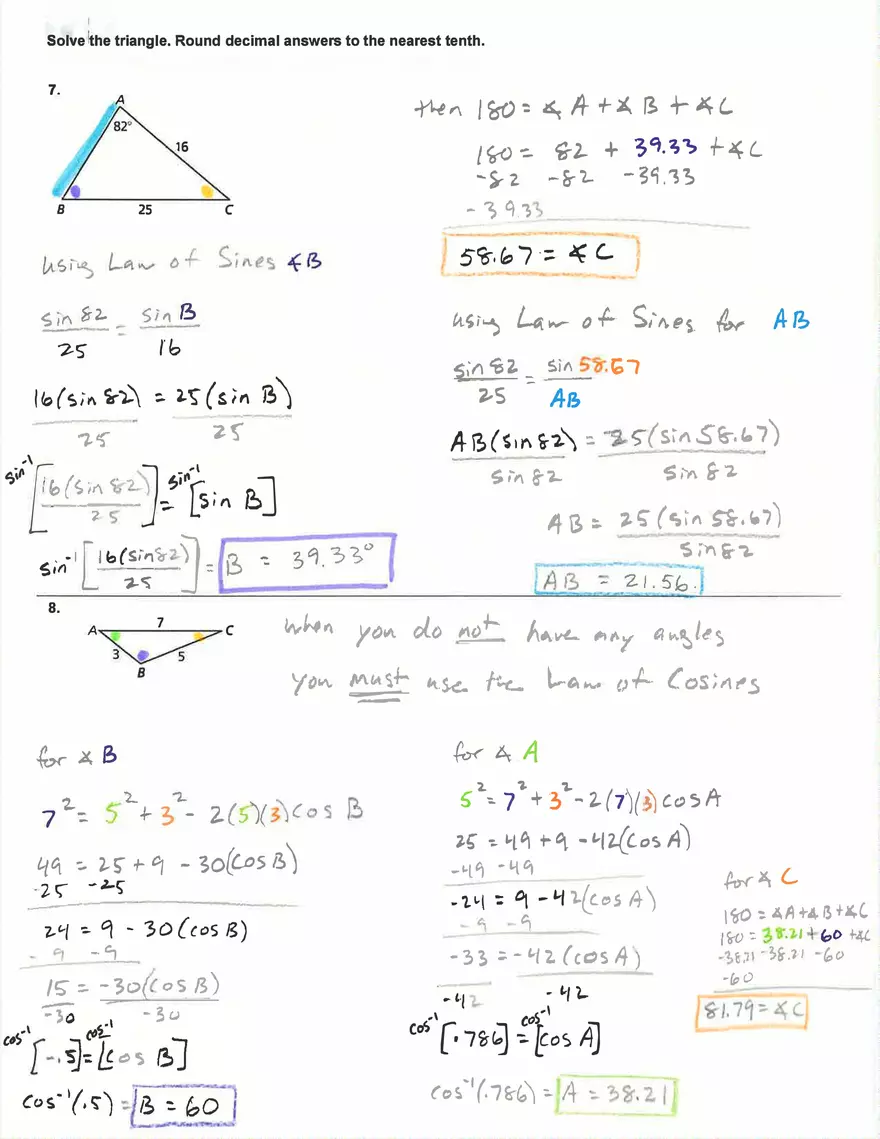 Solve the triangle. Round decimal answers to the nearest tenth.
7.
A
82°
16
B
25
C
using Law of Sines ∡B
sin 82 / 25 = sin B / 16
16(sin 82) / 25 = 25(sin B) / 25
sin⁻¹ [16(sin 82) / 25] = sin⁻¹ [sin B]
sin⁻¹ [16(sin 82) / 25] = B = 39.33°
then 180 = ∡A + ∡B + ∡C
180 = 82 + 39.33 + ∡C
-82 -82 -39.33
-39.33
58.67 = ∡C
using Law of Sines for AB
sin 82 / 25 = sin 58.67 / AB
AB(sin 82) / sin 82 = 25(sin 58.67) / sin 82
AB = 25(sin 58.67) / sin 82
AB = 21.56.
8.
A
7
C
3
5
B
When you do not have any angles
you must use the Law of Cosines
for ∡B
7² = 5² + 3² - 2(5)(3)cos B
49 = 25 + 9 - 30(cos B)
-25 -25
24 = 9 - 30(cos B)
-9 -9
15 / -30 = -30(cos B) / -30
cos⁻¹ [-.5] = cos⁻¹ [cos B]
cos⁻¹(.5) = B = 60
for ∡A
5² = 7² + 3² - 2(7)(3)cos A
25 = 49 + 9 - 42(cos A)
-49 -49
-24 = 9 - 42(cos A)
-9 -9
-33 / -42 = -42(cos A) / -42
cos⁻¹ [.786] = cos⁻¹ [cos A]
cos⁻¹(.786) = A = 38.21
for ∡C
180 = ∡A + ∡B + ∡C
180 = 38.21 + 60 + ∡C
-38.21 -38.21 -60
-60
81.79 = ∡C